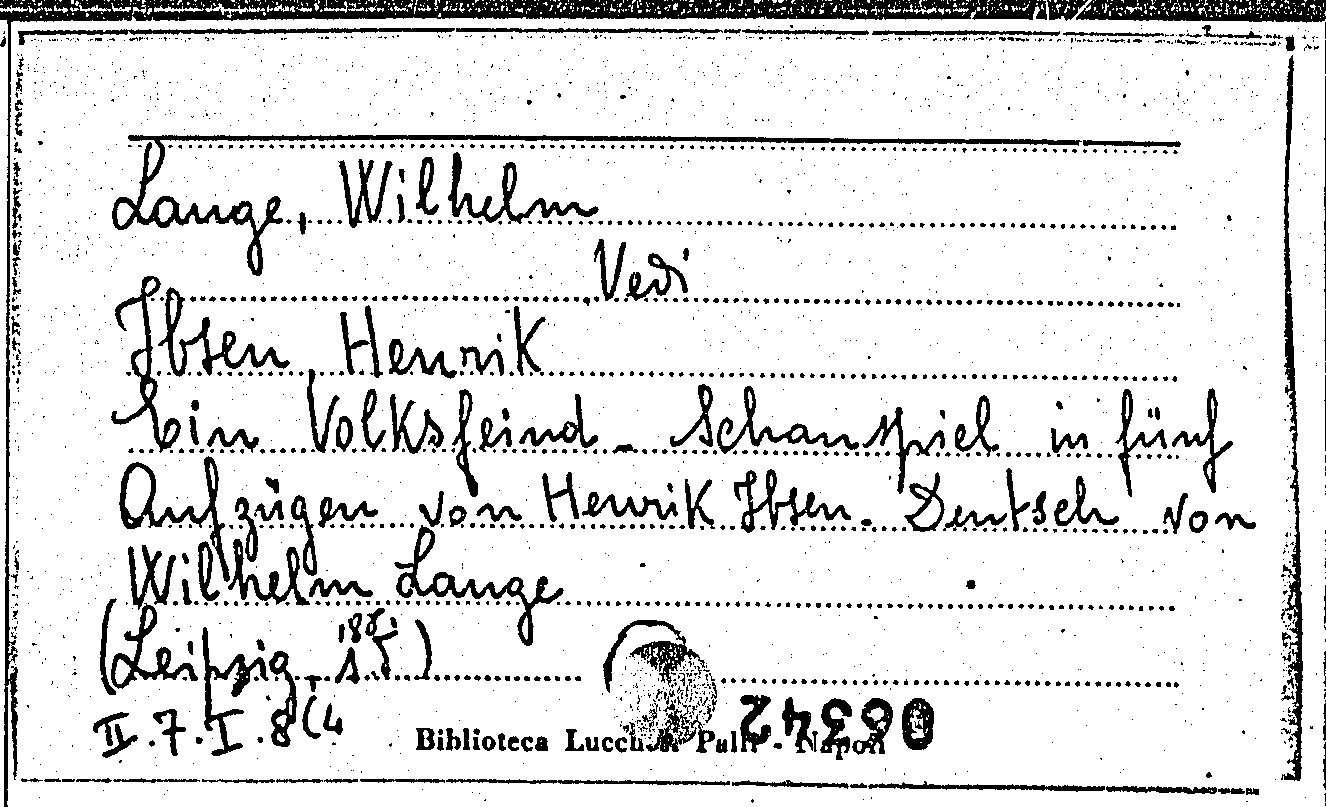 Lange, Wilhelm
Vedi
Ibsen, Henrik
Ein Volksfeind - Schauspiel in fünf
Aufzügen von Henrik Ibsen. Deutsch von
Wilhelm Lange
(Leipzig,
II.7.I.8(4
Biblioteca Lucchesi Palli - Napoli
06342